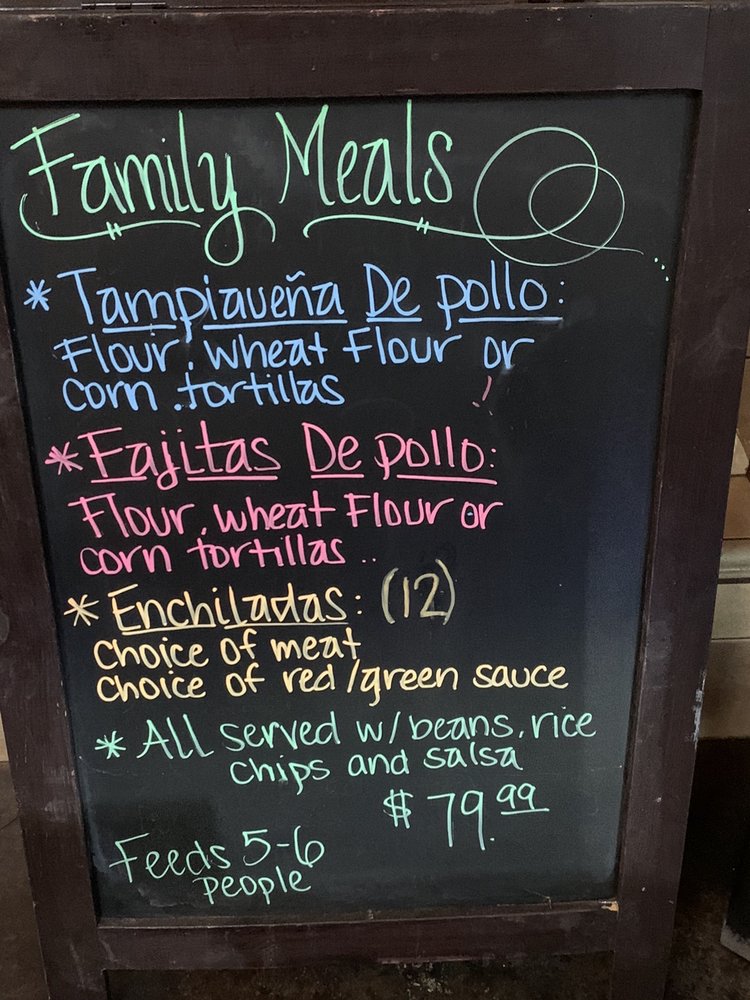 Family Meals
* Tampiaueña De pollo:
Flour, wheat Flour or
corn tortillas
* Fajitas De pollo:
Flour, wheat Flour or
corn tortillas ..
* Enchiladas: (12)
choice of meat
choice of red/green sauce
* All served w/beans, rice
chips and salsa
$79.99
Feeds 5-6
people